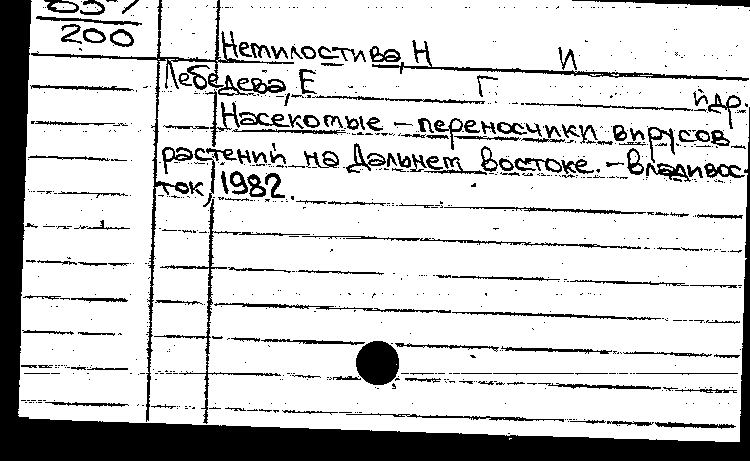 200
Нетилостива, Н И
Лебедева, Е Г идр.
Насекомые – переносчики вирусов
растений на Дальнем Востоке. – Владивос-
ток, 1982.